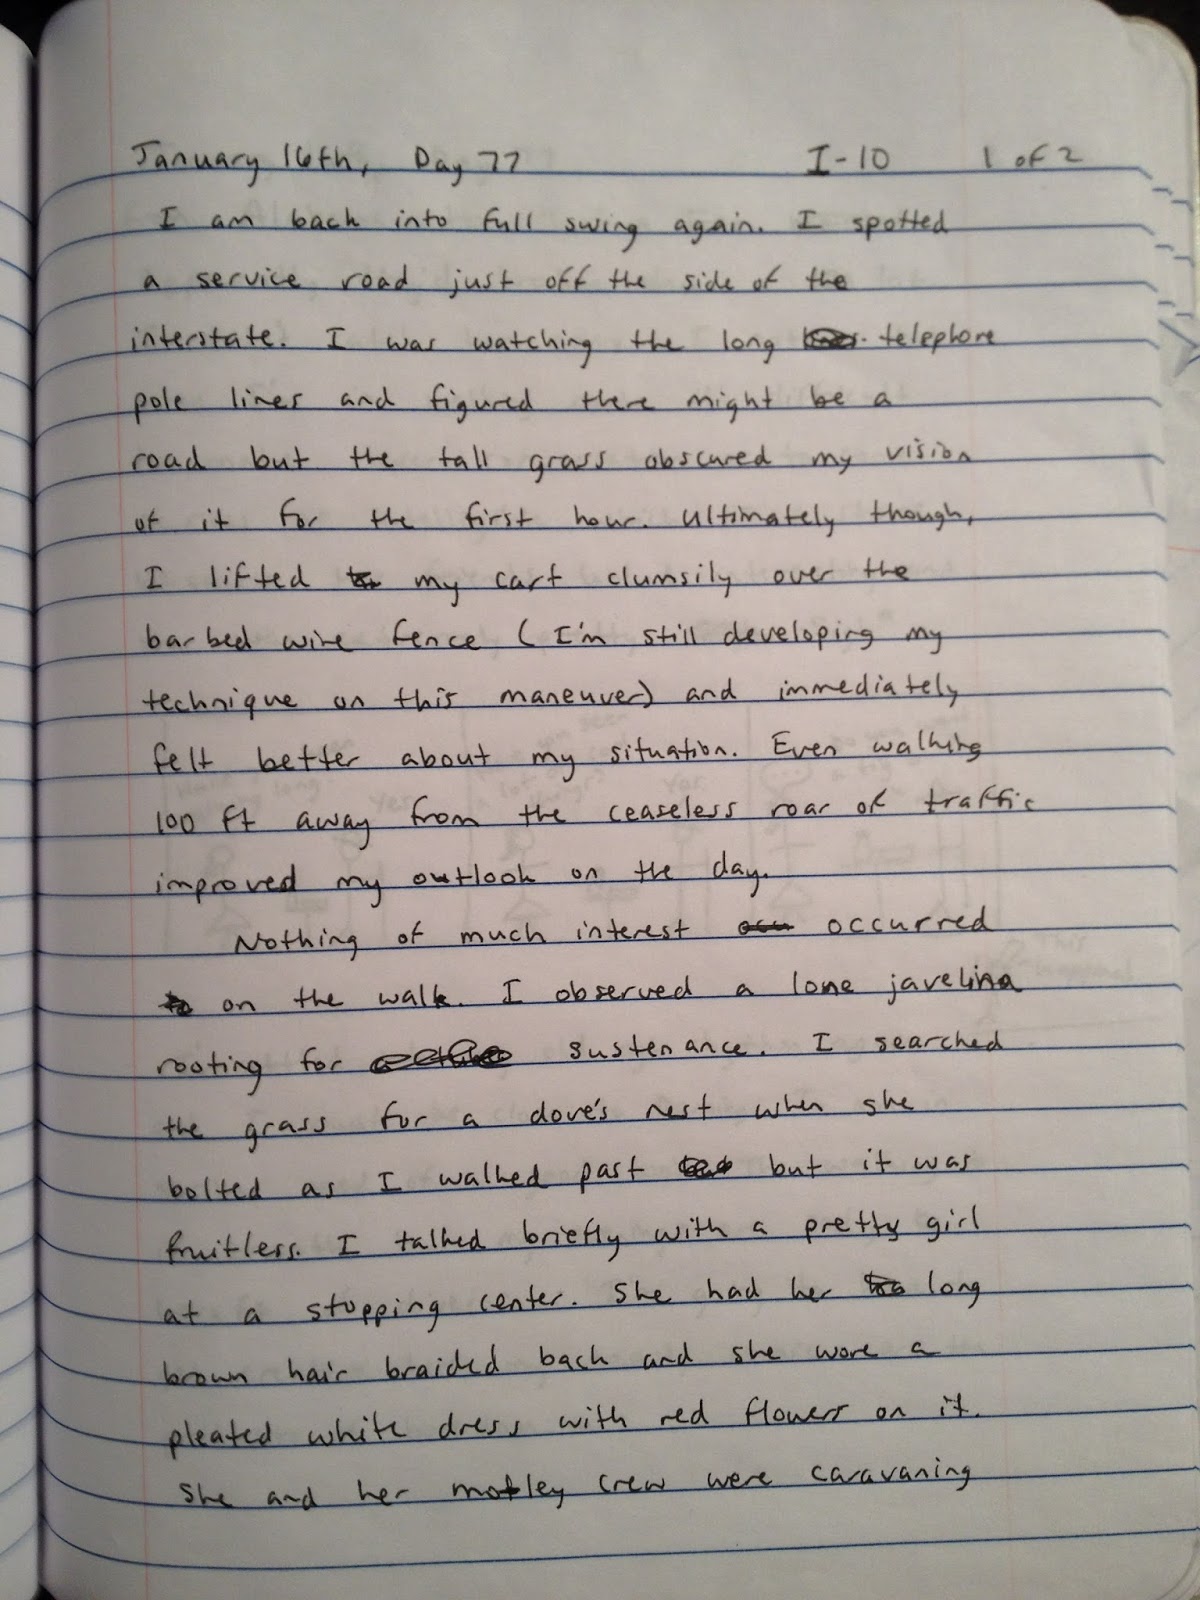 January 16th, Day 77 I-10 1 of 2
I am back into full swing again. I spotted
a service road just off the side of the
interstate. I was watching the long telephone
pole lines and figured there might be a
road but the tall grass obscured my vision
of it for the first hour. Ultimately though,
I lifted my cart clumsily over the
barbed wire fence (I'm still developing my
technique on this maneuver) and immediately
felt better about my situation. Even walking
100 ft away from the ceaseless roar of traffic
improved my outlook on the day.
Nothing of much interest occurred
on the walk. I observed a lone javelina
rooting for sustenance. I searched
the grass for a dove's nest when she
bolted as I walked past but it was
fruitless. I talked briefly with a pretty girl
at a stopping center. She had her long
brown hair braided back and she wore a
pleated white dress with red flowers on it.
She and her motley crew were caravaning